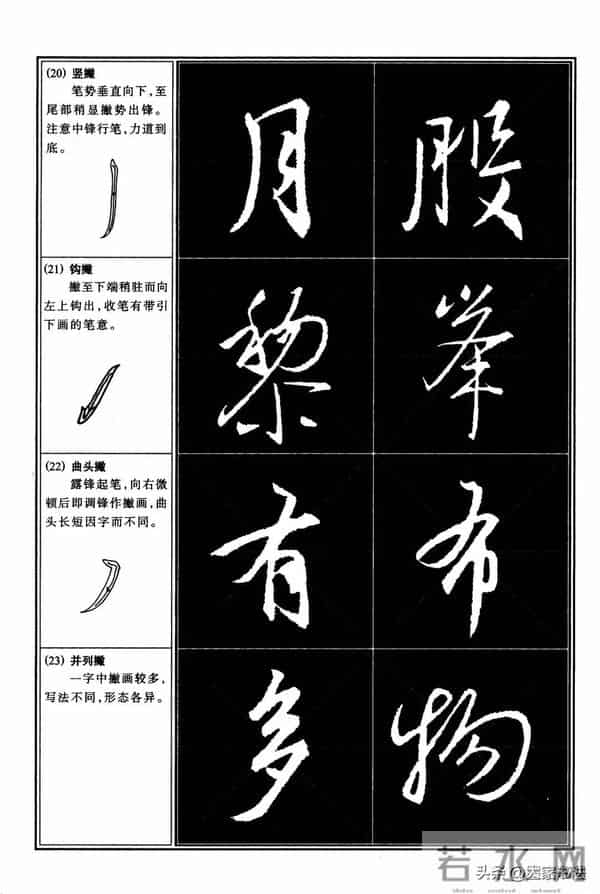 (20) 竖撇
笔势垂直向下，至
尾部稍显撇势出锋。
注意中锋行笔，力道到
底。
月 股
(21) 钩撇
撇至下端稍驻而向
左上钩出，收笔有带引
下画的笔意。
黎 峯
(22) 曲头撇
露锋起笔，向右微
顿后即调锋作撇画，曲
头长短因字而不同。
有 布
(23) 并列撇
一字中撇画较多，
写法不同，形态各异。
多 物
若水网
头条@